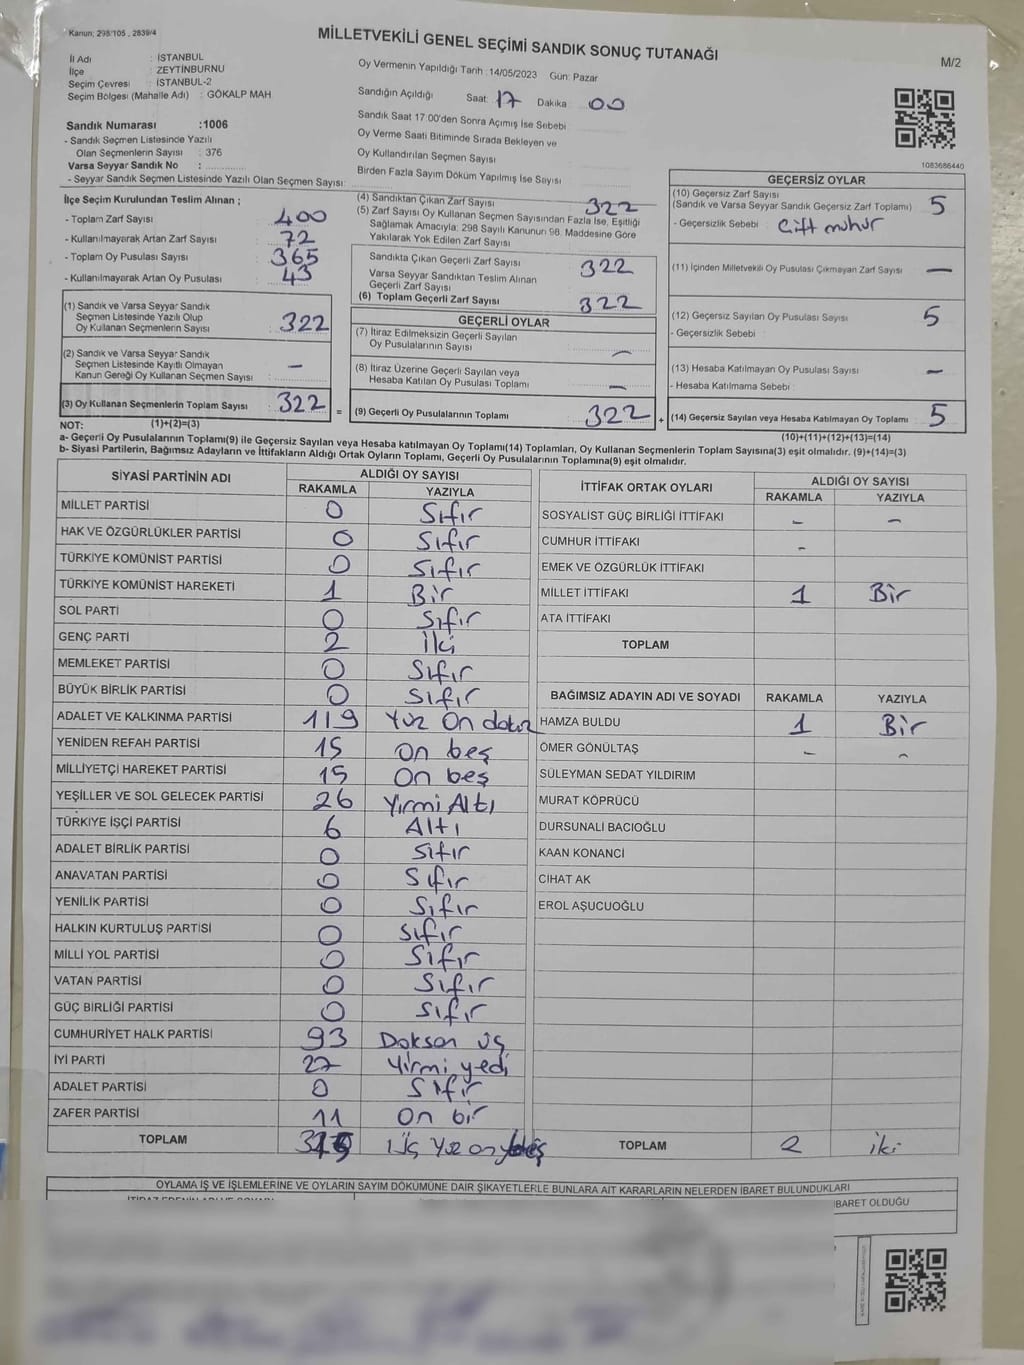 Kanun; 298/105 , 2839/4
MİLLETVEKİLİ GENEL SEÇİMİ SANDIK SONUÇ TUTANAĞI
M/2
İl Adı : İSTANBUL
İlçe : ZEYTİNBURNU
Seçim Çevresi : İSTANBUL-2
Seçim Bölgesi (Mahalle Adı) : GÖKALP MAH
Sandık Numarası :1006
- Sandık Seçmen Listesinde Yazılı
Olan Seçmenlerin Sayısı : 376
Varsa Seyyar Sandık No :
- Seyyar Sandık Seçmen Listesinde Yazılı Olan Seçmen Sayısı:
Oy Vermenin Yapıldığı Tarih :14/05/2023 Gün: Pazar
Sandığın Açıldığı Saat: 17 Dakika: 00
Sandık Saat 17:00'den Sonra Açılmış İse Sebebi
Oy Verme Saati Bitiminde Sırada Bekleyen ve
Oy Kullandırılan Seçmen Sayısı
Birden Fazla Sayım Döküm Yapılmış İse Sayısı
1083686440
İlçe Seçim Kurulundan Teslim Alınan ;
- Toplam Zarf Sayısı : 400
- Kullanılmayarak Artan Zarf Sayısı : 72
- Toplam Oy Pusulası Sayısı : 365
- Kullanılmayarak Artan Oy Pusulası : 43
(1) Sandık ve Varsa Seyyar Sandık
Seçmen Listesinde Yazılı Olup
Oy Kullanan Seçmenlerin Sayısı : 322
(2) Sandık ve Varsa Seyyar Sandık
Seçmen Listesinde Kayıtlı Olmayan
Kanun Gereği Oy Kullanan Seçmen Sayısı : –
(3) Oy Kullanan Seçmenlerin Toplam Sayısı : 322 =
(4) Sandıktan Çıkan Zarf Sayısı 322
(5) Zarf Sayısı Oy Kullanan Seçmen Sayısından Fazla İse, Eşitliği
Sağlamak Amacıyla; 298 Sayılı Kanunun 98. Maddesine Göre
Yakılarak Yok Edilen Zarf Sayısı
Sandıkta Çıkan Geçerli Zarf Sayısı 322
Varsa Seyyar Sandıktan Teslim Alınan
Geçerli Zarf Sayısı
(6) Toplam Geçerli Zarf Sayısı 322
GEÇERLİ OYLAR
(7) İtiraz Edilmeksizin Geçerli Sayılan
Oy Pusulalarının Sayısı –
(8) İtiraz Üzerine Geçerli Sayılan veya
Hesaba Katılan Oy Pusulası Toplamı –
(9) Geçerli Oy Pusulalarının Toplamı 322 +
GEÇERSİZ OYLAR
(10) Geçersiz Zarf Sayısı
(Sandık ve Varsa Seyyar Sandık Geçersiz Zarf Toplamı) 5
- Geçersizlik Sebebi : Çift mühür
(11) İçinden Milletvekili Oy Pusulası Çıkmayan Zarf Sayısı –
(12) Geçersiz Sayılan Oy Pusulası Sayısı 5
- Geçersizlik Sebebi :
(13) Hesaba Katılmayan Oy Pusulası Sayısı –
- Hesaba Katılmama Sebebi :
(14) Geçersiz Sayılan veya Hesaba Katılmayan Oy Toplamı 5
NOT: (1)+(2)=(3)
(10)+(11)+(12)+(13)=(14)
a- Geçerli Oy Pusulalarının Toplamı(9) ile Geçersiz Sayılan veya Hesaba katılmayan Oy Toplamı(14) Toplamları, Oy Kullanan Seçmenlerin Toplam Sayısına(3) eşit olmalıdır. (9)+(14)=(3)
b- Siyasi Partilerin, Bağımsız Adayların ve İttifakların Aldığı Ortak Oyların Toplamı, Geçerli Oy Pusulalarının Toplamına(9) eşit olmalıdır.
SİYASİ PARTİNİN ADI ALDIĞI OY SAYISI
RAKAMLA YAZIYLA
MİLLET PARTİSİ 0 Sıfır
HAK VE ÖZGÜRLÜKLER PARTİSİ 0 Sıfır
TÜRKİYE KOMÜNİST PARTİSİ 0 Sıfır
TÜRKİYE KOMÜNİST HAREKETİ 1 Bir
SOL PARTİ 0 Sıfır
GENÇ PARTİ 2 İki
MEMLEKET PARTİSİ 0 Sıfır
BÜYÜK BİRLİK PARTİSİ 0 Sıfır
ADALET VE KALKINMA PARTİSİ 119 Yüz On dokuz
YENİDEN REFAH PARTİSİ 15 On beş
MİLLİYETÇİ HAREKET PARTİSİ 15 On beş
YEŞİLLER VE SOL GELECEK PARTİSİ 26 Yirmi Altı
TÜRKİYE İŞÇİ PARTİSİ 6 Altı
ADALET BİRLİK PARTİSİ 0 Sıfır
ANAVATAN PARTİSİ 0 Sıfır
YENİLİK PARTİSİ 0 Sıfır
HALKIN KURTULUŞ PARTİSİ 0 Sıfır
MİLLİ YOL PARTİSİ 0 Sıfır
VATAN PARTİSİ 0 Sıfır
GÜÇ BİRLİĞİ PARTİSİ 0 Sıfır
CUMHURİYET HALK PARTİSİ 93 Doksan üç
İYİ PARTİ 27 Yirmi yedi
ADALET PARTİSİ 0 Sıfır
ZAFER PARTİSİ 11 On bir
TOPLAM Üç Yüz on
İTTİFAK ORTAK OYLARI ALDIĞI OY SAYISI
RAKAMLA YAZIYLA
SOSYALİST GÜÇ BİRLİĞİ İTTİFAKI – –
CUMHUR İTTİFAKI –
EMEK VE ÖZGÜRLÜK İTTİFAKI
MİLLET İTTİFAKI 1 Bir
ATA İTTİFAKI
TOPLAM
BAĞIMSIZ ADAYIN ADI VE SOYADI RAKAMLA YAZIYLA
HAMZA BULDU 1 Bir
ÖMER GÖNÜLTAŞ – –
SÜLEYMAN SEDAT YILDIRIM
MURAT KÖPRÜCÜ
DURSUNALİ BACIOĞLU
KAAN KONANCİ
CİHAT AK
EROL AŞUCUOĞLU
TOPLAM 2 iki
OYLAMA İŞ VE İŞLEMLERİNE VE OYLARIN SAYIM DÖKÜMÜNE DAİR ŞİKAYETLERLE BUNLARA AİT KARARLARIN NELERDEN İBARET BULUNDUKLARI
İBARET OLDUĞU